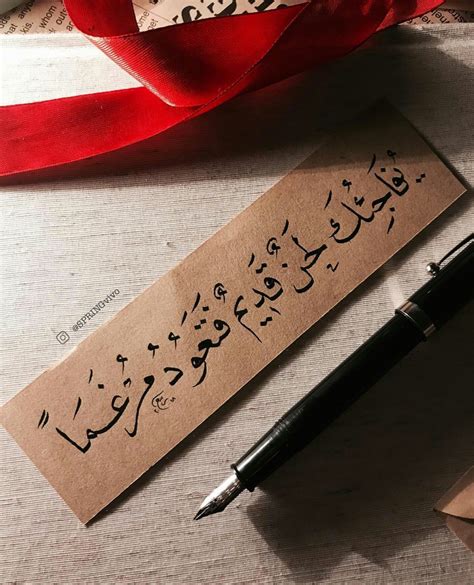 whom
يُفَاجِئُكَ لَحنٌ قَدِيم فَتَعُودُ مُرغَمَاً
@SPRINGvivo